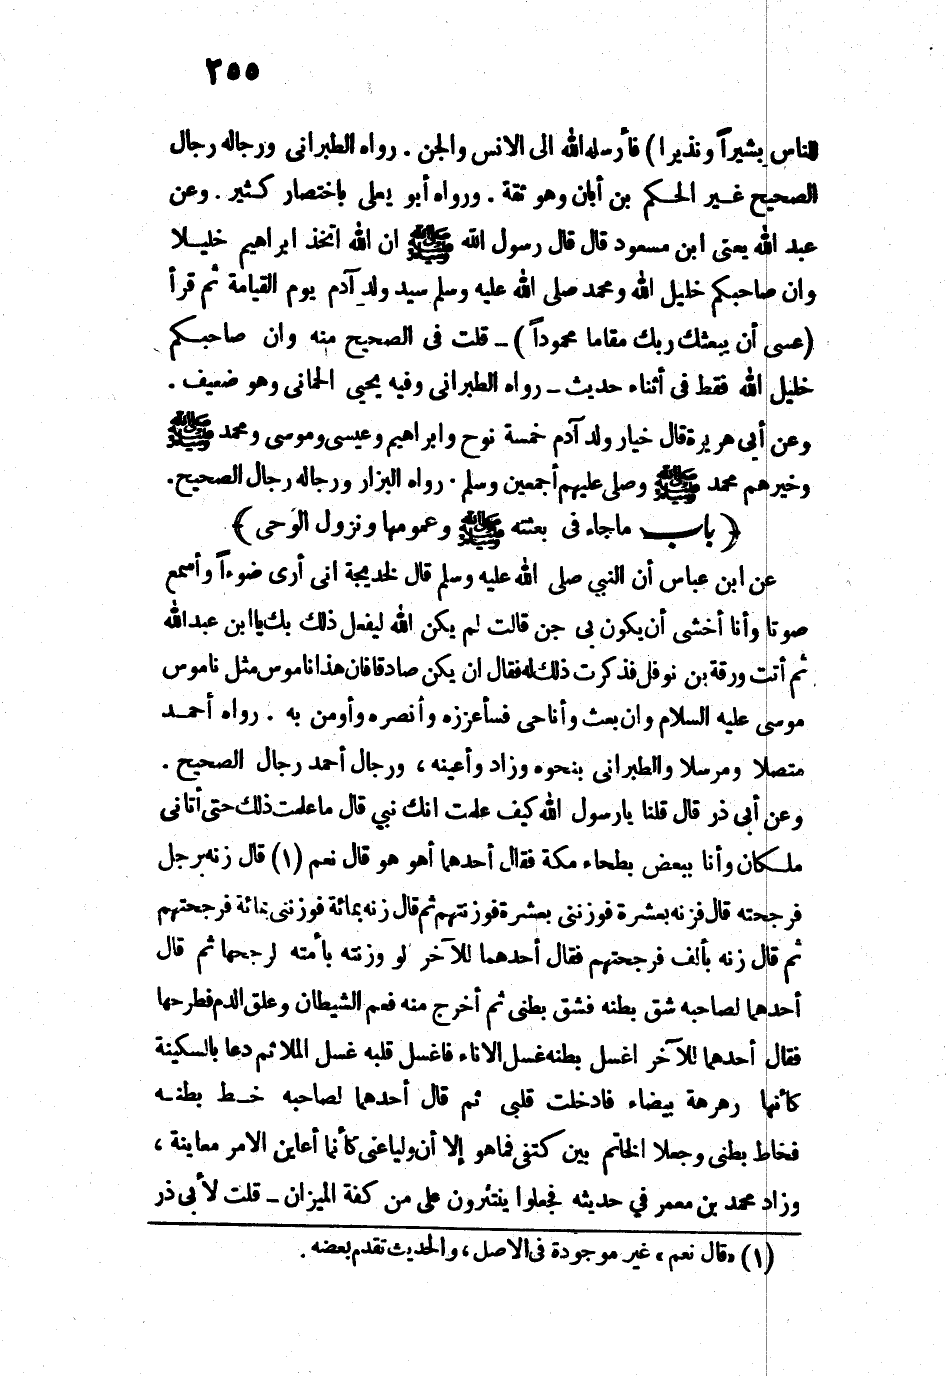 ٢٥٥
للناس بشيراً ونذيرا) فأرسله الله الى الانس والجن . رواه الطبرانى ورجاله رجال
الصحيح غير الحكم بن أبان وهو ثقة . ورواه أبو يعلى باختصار كثير . وعن
عبد الله يعنى ابن مسعود قال قال رسول الله ﷺ ان الله اتخذ ابراهيم خليلا
وان صاحبكم خليل الله ومحمد صلى الله عليه وسلم سيد ولد آدم يوم القيامة ثم قرأ
(عسى أن يبعثك ربك مقاما محموداً) ـ قلت فى الصحيح منه وان صاحبكم
خليل الله فقط فى أثناء حديث ـ رواه الطبرانى وفيه يحيى الحمانى وهو ضعيف .
وعن أبى هريرة قال خيار ولد آدم خمسة نوح وابراهيم وعيسى وموسى ومحمد ﷺ
وخيرهم محمد ﷺ وصلى عليهم أجمعين وسلم . رواه البزار ورجاله رجال الصحيح.
﴿ باب ماجاء فى بعثته ﷺ وعمومها ونزول الوحى ﴾
عن ابن عباس أن النبي صلى الله عليه وسلم قال لخديجة انى أرى ضوءاً وأسمع
صوتا وأنا أخشى أن يكون بى جن قالت لم يكن الله ليفعل ذلك بك ياابن عبدالله
ثم أتت ورقة بن نوفل فذكرت ذلك له فقال ان يكن صادقا فان هذا ناموس مثل ناموس
موسى عليه السلام وان بعث وأناحى فسأعززه وأنصره وأومن به . رواه أحمد
متصلا ومرسلا والطبرانى بنحوه وزاد وأعينه ، ورجال أحمد رجال الصحيح .
وعن أبى ذر قال قلنا يارسول الله كيف علمت انك نبي قال ماعلمت ذلك حتى أتانى
ملكان وأنا ببعض بطحاء مكة فقال أحدهما أهو هو قال نعم (١) قال زنه برجل
فرجحته قال فزنه بعشرة فوزننى بعشرة فوزنتهم ثم قال زنه بمائة فوزننى بمائة فرجحتهم
ثم قال زنه بألف فرجحتهم فقال أحدهما للآخر لو وزنته بأمته لرجحها ثم قال
أحدهما لصاحبه شق بطنه فشق بطنى ثم أخرج منه فعم الشيطان وعلق الدم فطرحها
فقال أحدهما للآخر اغسل بطنه غسل الاناء فاغسل قلبه غسل الملا ثم دعا بالسكينة
كأنها رهرهة بيضاء فادخلت قلبى ثم قال أحدهما لصاحبه خط بطنه
فخاط بطنى وجعلا الخاتم بين كتفى فماهو إلا أن وليا عنى كأنما أعاين الامر معاينة ،
وزاد محمد بن معمر في حديثه فجعلوا ينتثرون على من كفة الميزان ـ قلت لأبى ذر
(١) «قال نعم» غير موجودة فى الاصل، والحديث تقدم بعضه .